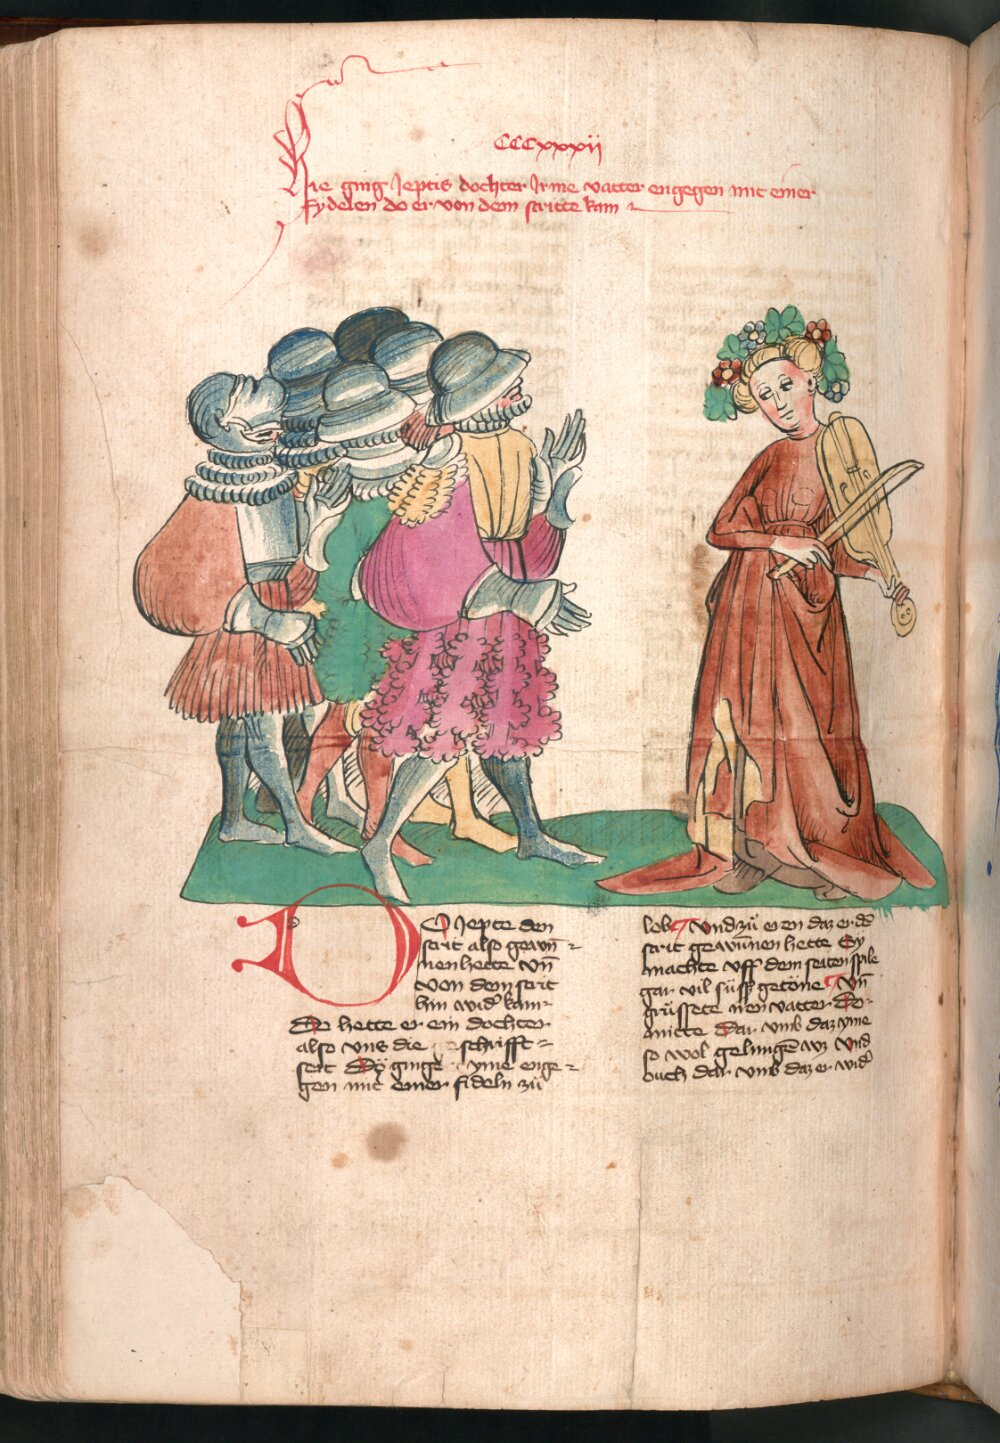 CCCxxxij
Hie ging Jeptis dochter Irme vatter engegen mit einer
fydelen do er von dem stritte kam
DO Jepte den
strit also gewūn
nen hette vn̄
von dem strit
hin wid̕ kam
Do hette er ein dochter
also vns die geschrifft
seit Dÿ ginge yme enge
gen mit einer fideln zů
lob Vnd zů eren daz er dē
strit gewūnen hette Sy
machte vff dem seitenspile
gar vil süsß getöne Vn̄
grůssete iren vatter Do
mitte Dar vmb daz yme
so wol gelungē wz Vnd
ouch dar vmb daz er wid̕